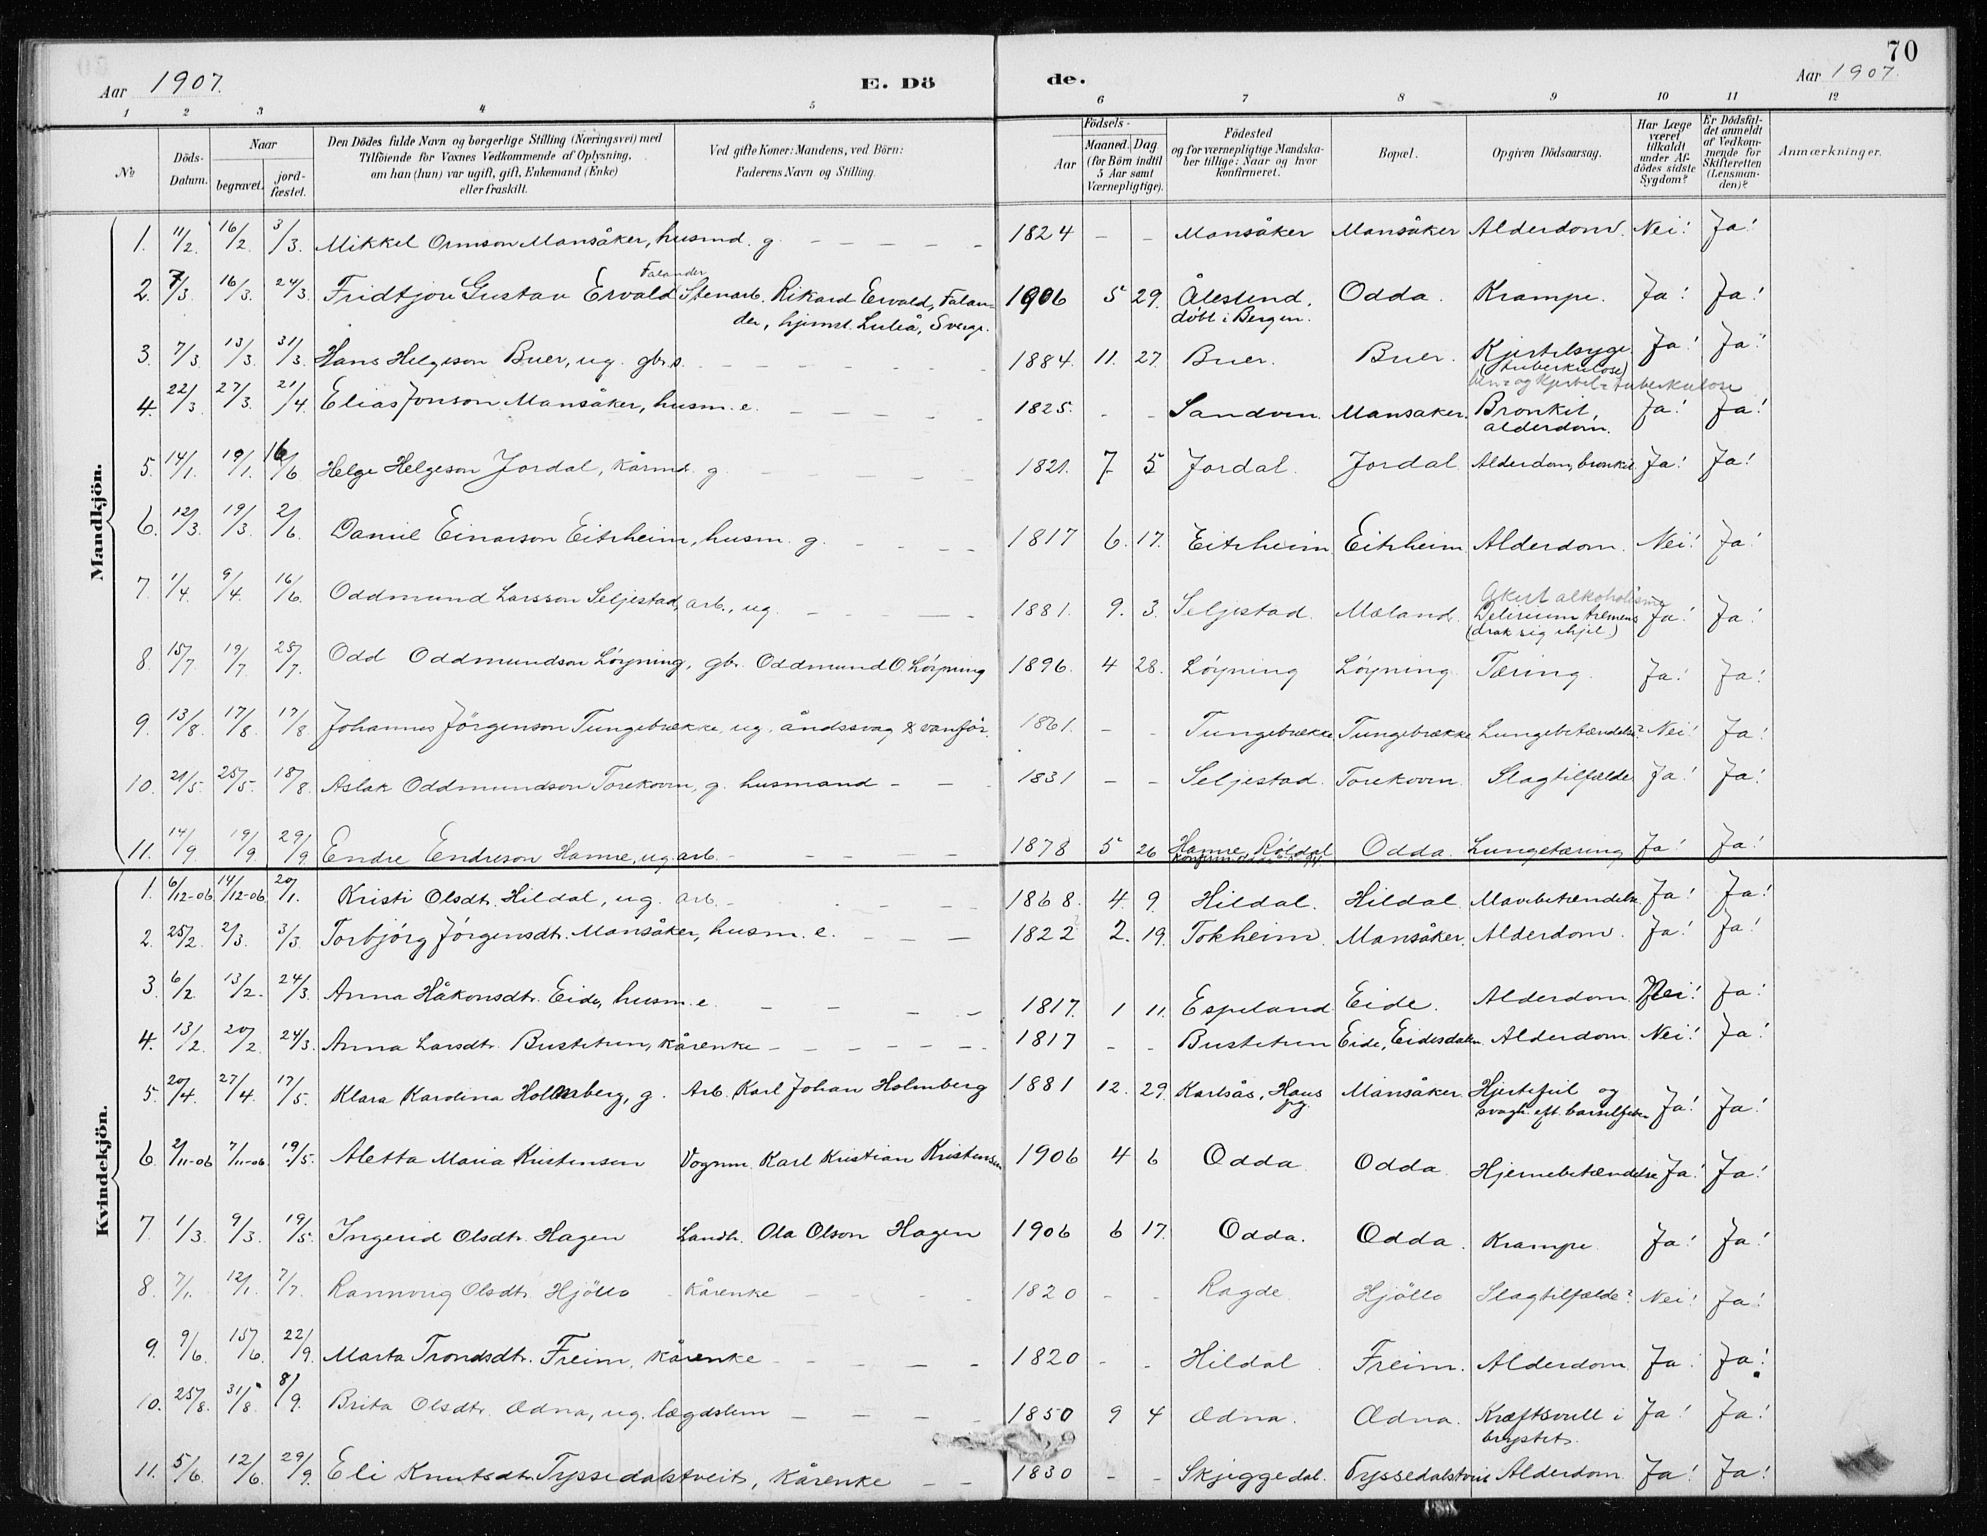 70
Aar 1907.
E. Dö
de.
Aar 1907.
1 2 3 4 5 6 7 8 9 10 11 12
No
Döds-Datum.
Naar
begravet.
jord-fæstet.
Den Dödes fulde Navn og borgerlige Stilling (Næringsvei) med
Tilföiende for Voxnes Vedkommende af Oplysning,
om han (hun) var ugift, gift, Enkemand (Enke)
eller fraskilt.
Ved gifte Koner: Mandens, ved Börn:
Faderens Navn og Stilling.
Födsels-
Aar
Maaned. Dag
(for Börn indtil
5 Aar samt
Værnepligtige).
Födested
og for værnepligtige Mandska-
ber tillige: Naar og hvor
konfirmeret.
Bopæl.
Opgiven Dödsaarsag.
Har Læge
været
tilkaldt
under Af-
dödes sidste
Sygdom?
Er Dödsfal-
det anmeldt
af Vedkom-
mende for
Skifteretten
(Lensman-
den)?
Anmærkninger.
Mandkjön.
1. 11/2 16/2. 3/3. Mikkel Ormson Mansåker, husmd. g. – – – – – 1824 – – Mansåker Mansåker Alderdom. Nei! Ja!
Falander
2. 7/3. 16/3. 24/3. Fridtjov Gustav Ervald Stenarb. Rikard Ervald, Falan- 1906 5 29. Ålesund, Odda. Krampe. Ja! Ja!
der, hjemst. Luleå, Sverge. döbt i Bergen.
3. 7/3 13/3. 31/3. Hans Helgeson Buer, ug. gbr.s. – – – 1884. 11. 27. Buer. Buer. Kjertelsyge Ja! Ja!
(tuberkulose)
ben= og kjertel=tuberkulose
4. 22/3 27/3. 21/4. Elias Jonson Mansåker, husm. e. – – – 1825. – – Sandven. Mansåker. Bronkit, Ja! Ja!
alderdom.
5. 14/1. 19/1. 16/6 Helge Helgeson Jordal, kårmd. g. – – – 1821. 7. 5 Jordal. Jordal Alderdom, bronkit. Ja! Ja!
6. 12/3. 19/3. 2/6. Daniel Einarson Eitrheim, husm. g. – – – 1817 6. 17. Eitrheim Eitrheim Alderdom. Nei! Ja!
7. 1/4. 9/4. 16/6. Oddmund Larsson Seljestad, arb., ug. – – – 1881. 9. 3. Seljestad. Mæland. Akut alkoholisme
Delirium tremens Ja! Ja!
(drak sig ihjel)
8. 15/7. 19/7. 25/7. Odd Oddmundson Löyning, gbr. Oddmund O. Löyning 1896. 4 28. Löyning Löyning. Tæring. Ja! Ja!
9. 13/8. 17/8. 17/8. Johannes Jörgenson Tungebrække, ug. åndssvag & vanför. 1861. – – Tungebrække Tungebrække. Lungebetændelse? Nei! Ja!
10. 21/5. 25/5. 18/8. Aslak Oddmundson Torekoven, g. husmand – – 1831 – – Seljestad. Torekoven. Slagtilfælde Ja! Ja!
11. 14/9 19/9. 29/9. Endre Endreson Hamre, ug. arb. – – – – 1878 5 26 Hamre, Röldal Odda. Lungetæring Ja! Ja!
Kvindekjön.
1. 6/12-06. 14/12-06. 20/1. Kristi Olsdtr. Hildal, ug. arb. – – – 1868. 4. 9. Hildal. Hildal. Mavebetændelse. Ja! Ja!
2. 25/2. 2/3. 3/3. Torbjörg Jörgensdtr. Mansåker, husm. e. – – – 1822 2. 19. Tokheim. Mansåker. Alderdom. Ja! Ja!
3. 6/2. 13/2. 24/3. Anna Håkonsdtr. Eide, husm. e. – – – – 1817. 1 11. Espeland Eide. Alderdom. Nei! Ja!
4. 13/2. 20/2. 24/3. Anna Larsdtr. Bustetun, kårenke – – – – – – 1817 – – Bustetun Eide, Eidesdalen. Alderdom. Nei! Ja!
5. 20/4. 27/4. 17/5. Klara Karolina Holmberg, g. Arb. Karl Johan Holmberg 1881 12. 29. Karlsås, Haus Mansåker Hjertefeil og Ja! Ja!
pg. svagh. eft. barselfeber
6. 2/11-06 7/11-06. 19/5. Aletta Maria Kristensen Vognm. Karl Kristian Kristensen 1906 4 6 Odda. Odda. Hjernebetændelse Ja! Ja!
7. 1/3. 9/3. 19/5. Ingerid Olsdtr. Hagen Landh. Ola Olson Hagen 1906 6 17. Odda. Odda. Krampe. Ja! Ja!
8. 7/1. 12/1. 7/7. Rannveig Olsdtr. Hjöllo – kårenke – – – – 1820 – – Ragde. Hjöllo Slagtilfælde? Nei! Ja!
9. 9/6. 15/6. 22/9. Marta Trondsdtr. Freim, kårenke – – – – – 1820 – – Hildal. Freim. Alderdom. Ja! Ja!
10. 25/8. 31/8. 8/9. Brita Olsdtr. Ædna, ug. lægdslem – – – 1850 9 4 Ædna. Ædna. Kræftsvull i Ja! Ja!
brystet.
11. 5/6. 12/6. 29/9. Eli Knutsdtr. Tyssedalstveit, kårenke – – 1830 – – Skjeggedal. Tyssedalstveit Alderdom. Ja! Ja!